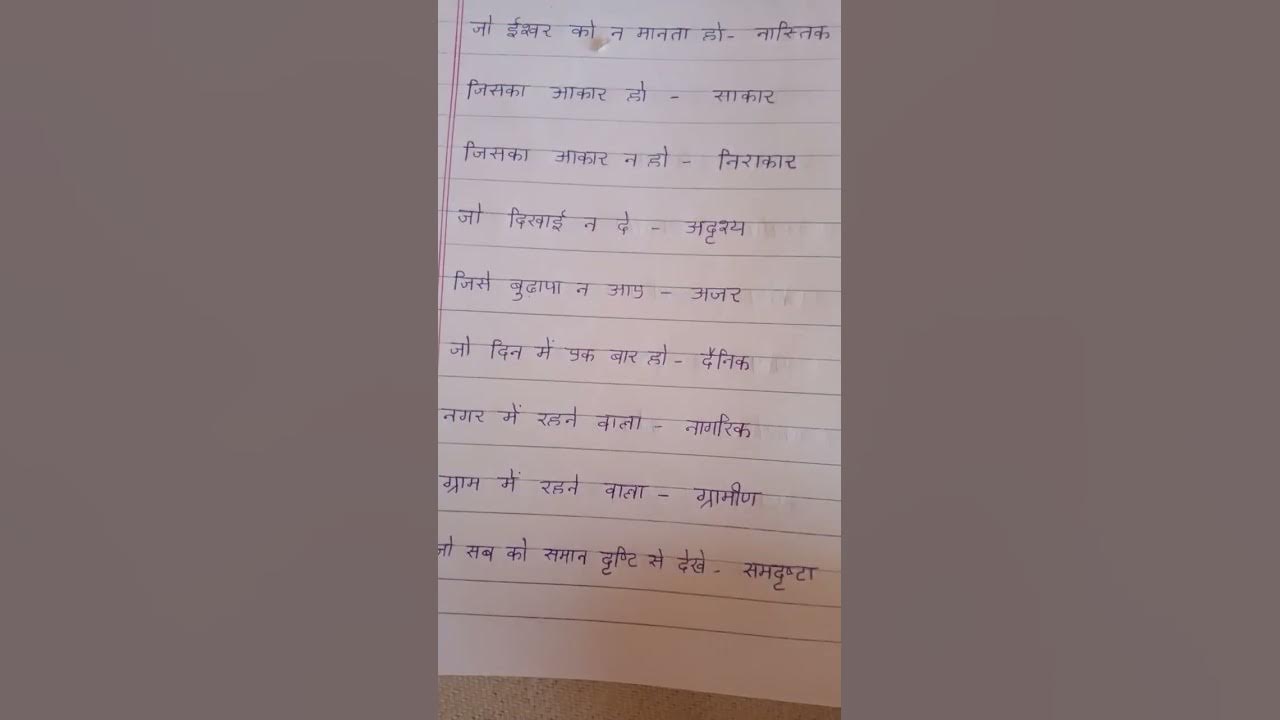 जो ईश्वर को न मानता हो- नास्तिक
जिसका आकार हो - साकार
जिसका आकार न हो - निराकार
जो दिखाई न दे - अदृश्य
जिसे बुढापा न आए - अजर
जो दिन में एक बार हो - दैनिक
नगर में रहने वाला - नागरिक
ग्राम में रहने वाला - ग्रामीण
जो सब को समान दृष्टि से देखे - समदृष्टा